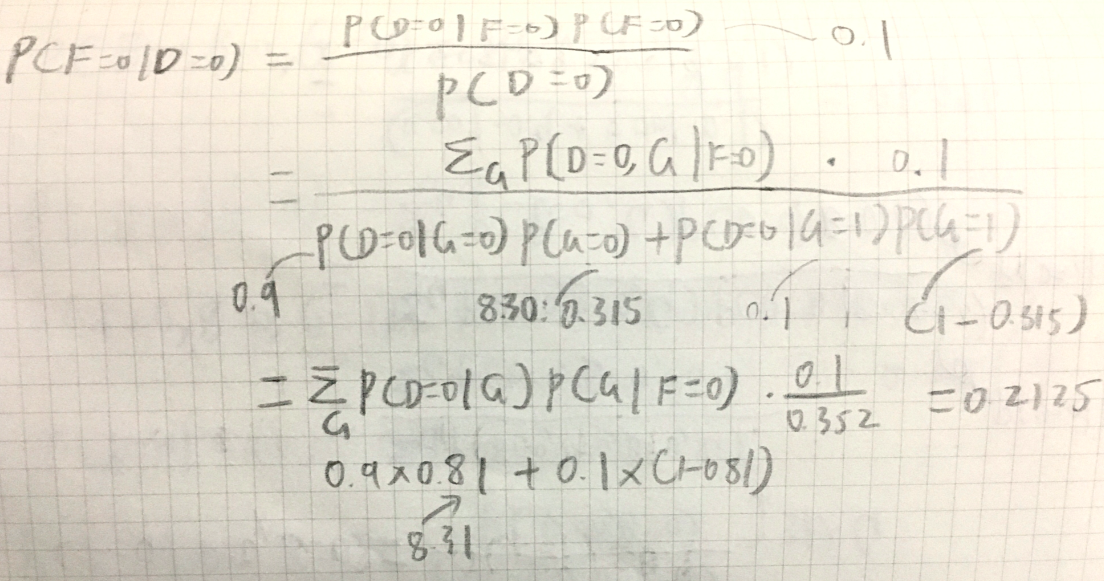 P(F=0|D=0) = P(D=0|F=0) P(F=0) / P(D=0) 0.1
= Σ_G P(D=0, G|F=0) · 0.1 / P(D=0|G=0) P(G=0) + P(D=0|G=1) P(G=1)
0.9 8.30: 0.315 0.1 (1-0.315)
= Σ_G P(D=0|G) P(G|F=0) · 0.1/0.352 = 0.2125
0.9×0.81 + 0.1×(1-0.81)
8.31